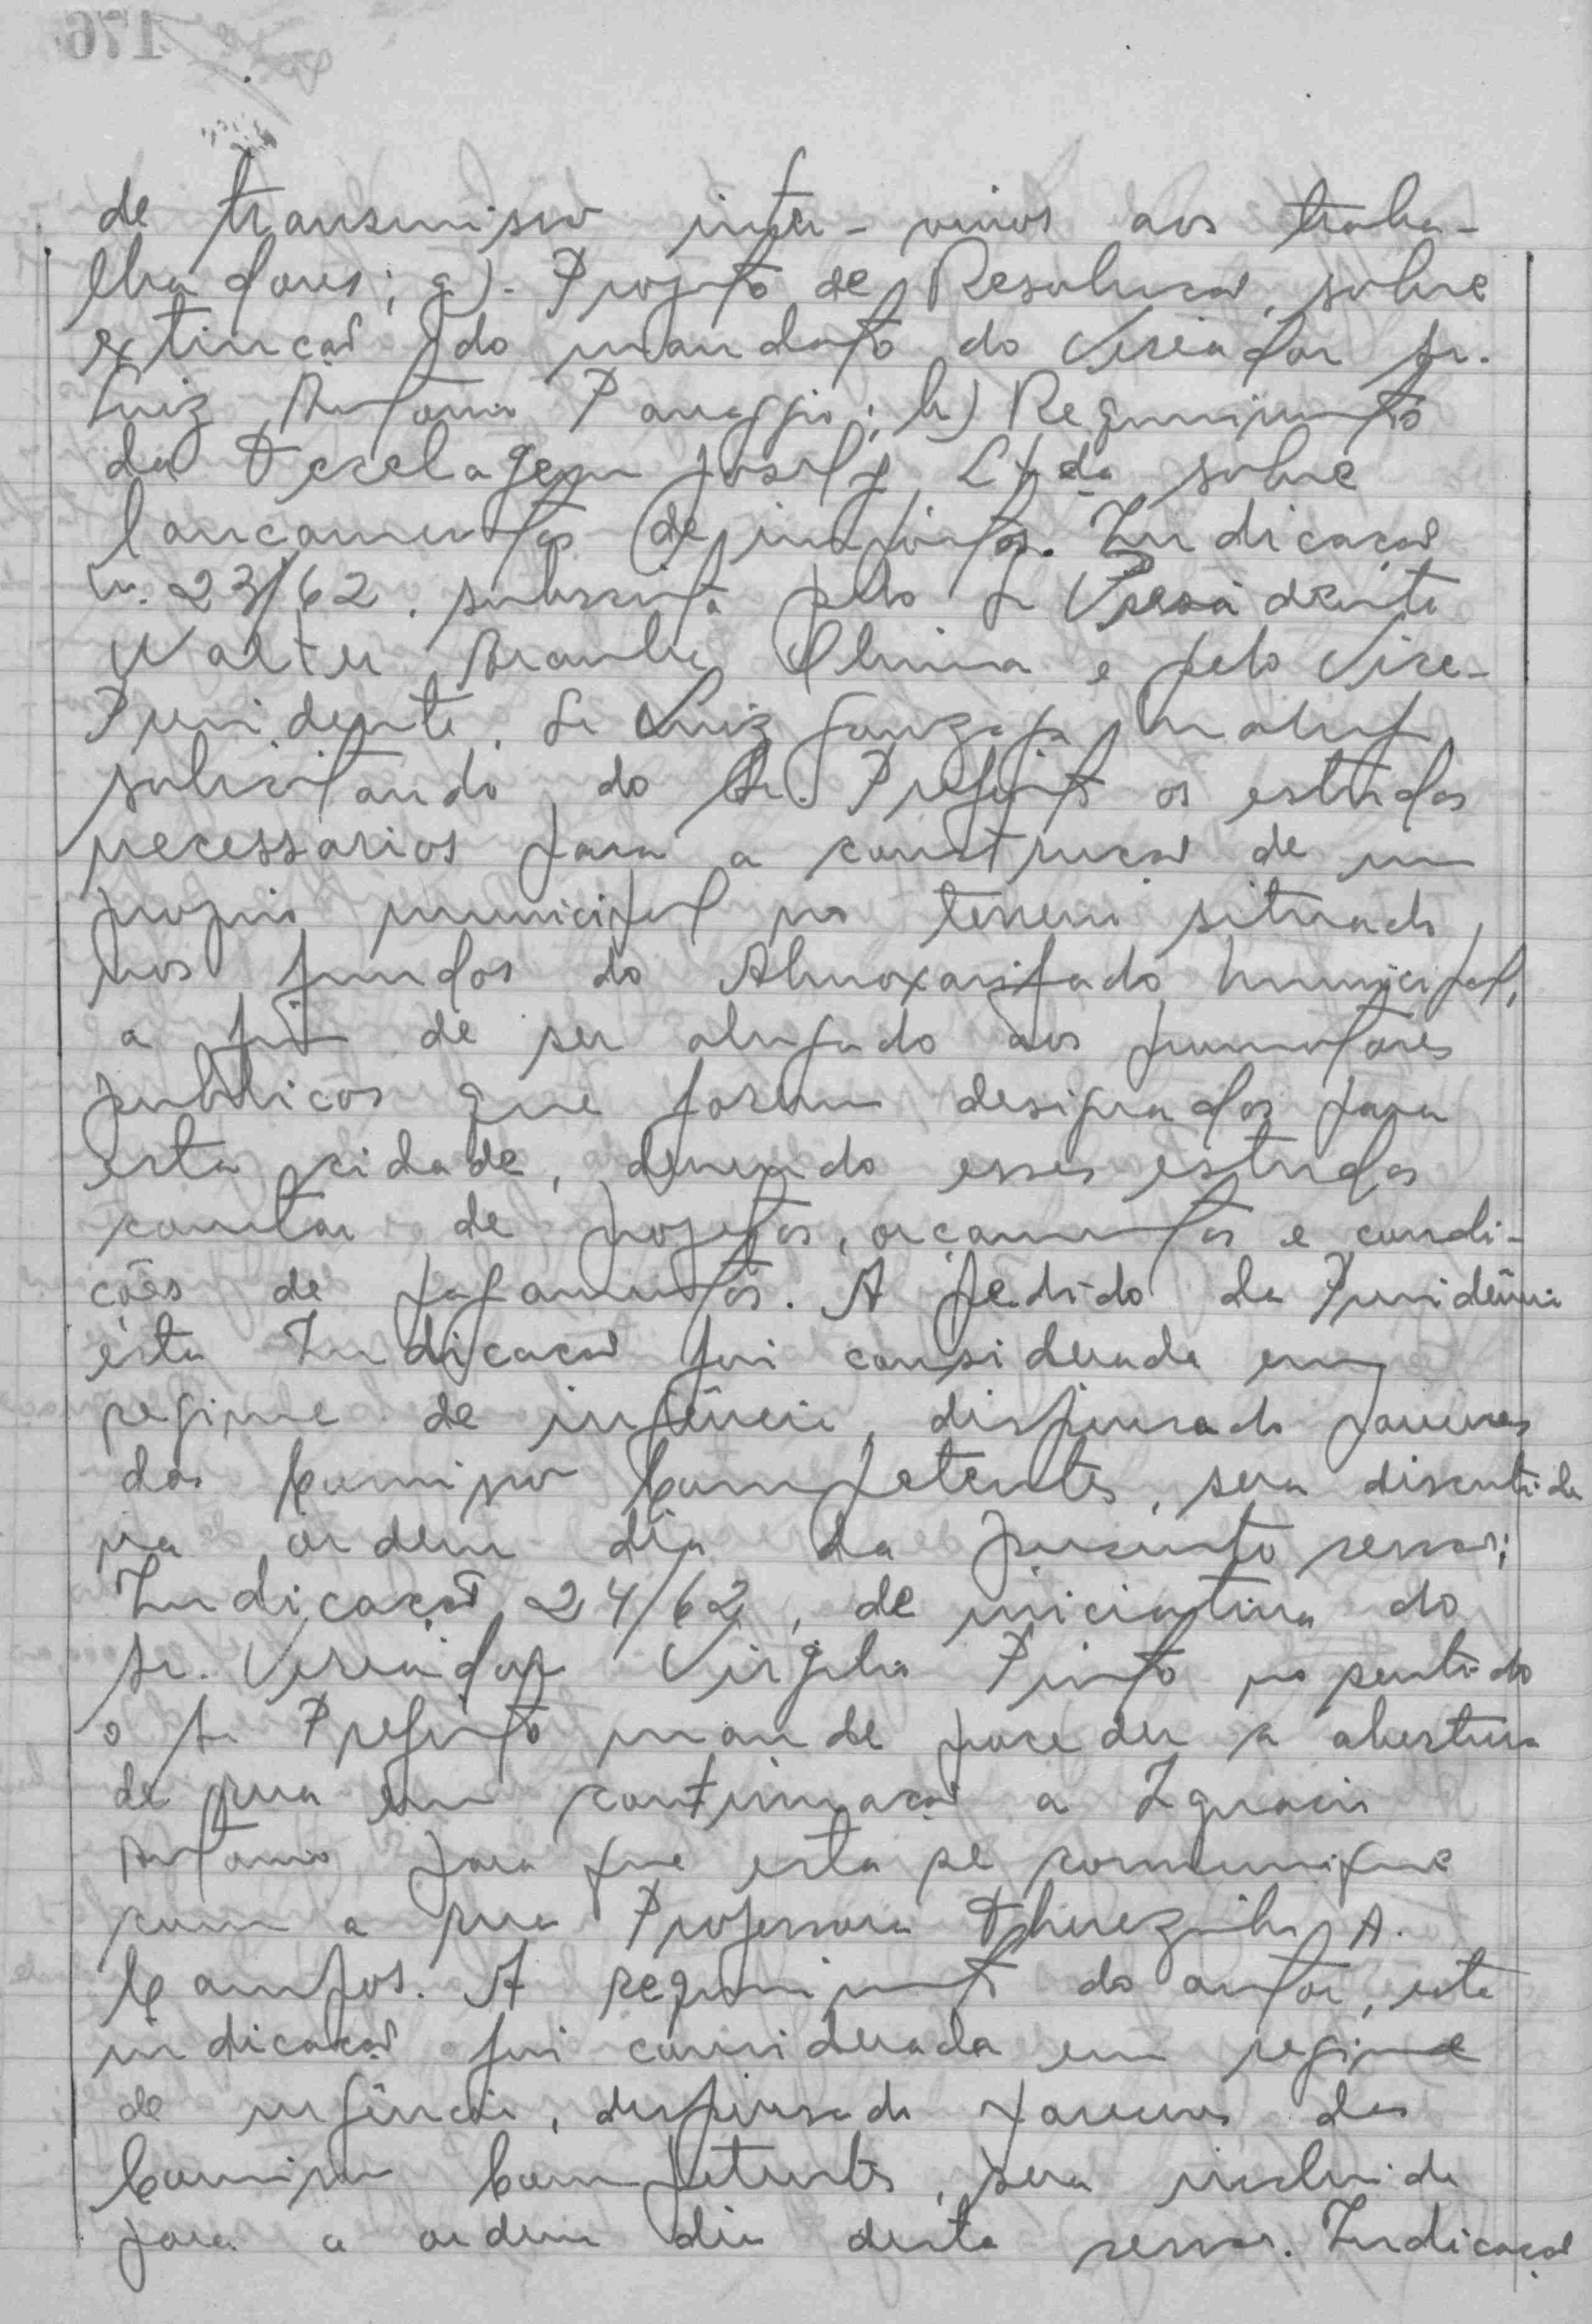 de transmissão inter-vivos aos traba-
lhadores; g). Projeto de Resolucão, sobre
extincão do mandato do Vereador sr.
Luiz Antonio Panaggio; h) Requerimento
da Tecelagem Ltda sobre
lancamentos de impostos. Indicacão
n. 23/62. subscrita pelo sr Presidente
Walter e pelo Vice-
Presidente, sr Luiz Gonzaga Maluf
solicitando, do Sr. Prefeito os estudos
necessarios para a construcão de um
proprio municipal no terreno situado,
nos fundos do Almoxarifado Municipal,
a fim de ser alugado aos promotores
publicos que forem designados para
esta cidade, devendo esses estudos
constar de projetos, orcamentos e condi-
ções de pagamentos. A pedido da Presidência
esta Indicacão foi considerada em
regime de urgência, dispensado pareceres
das Comissões Competentes, sera discutida
na ordem dia da presente sessão;
Indicação 24/62, de iniciativa do
sr. Vereador Virgilio Pinto no sentido
o sr Prefeito mande proceder a abertura
de rua em continuacão a Ignacio
Antonio para que esta se comunique
com a rua Professora Therezinha A.
Campos. A requerimento do autor, esta
indicacão foi considerada em regime
de urgência, dispensado pareceres das
Comissões Competentes, sera incluida
para a ordem dia desta sessão. Indicação